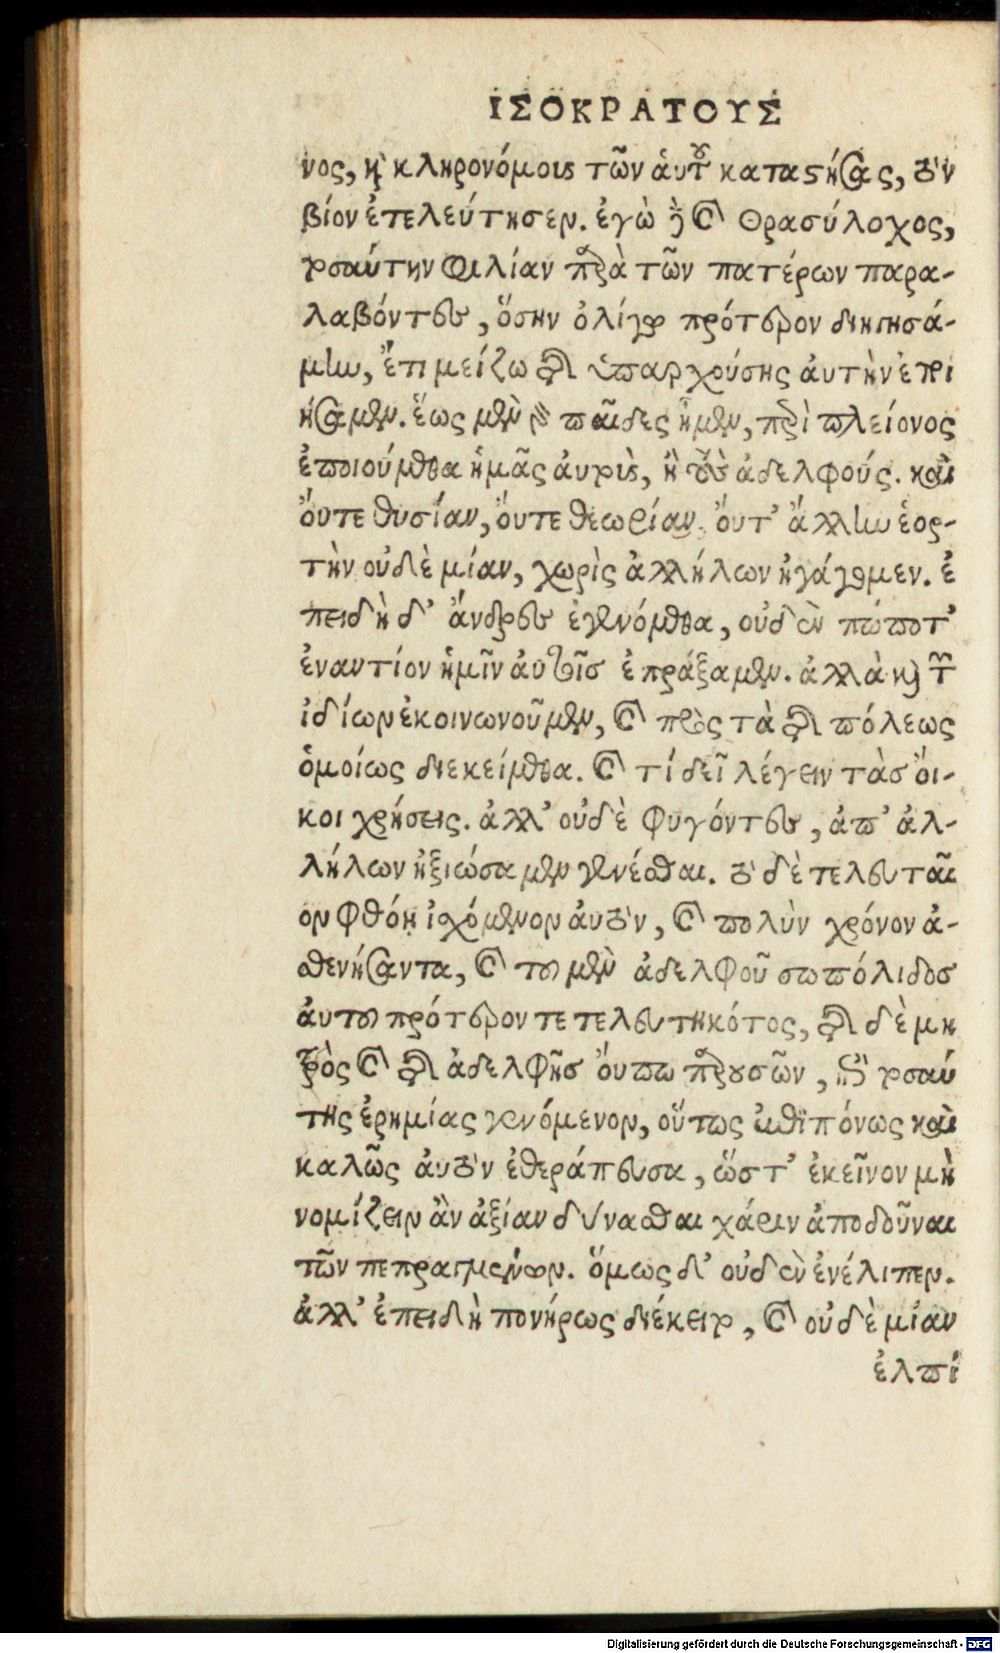 ΙΣΟΚΡΑΤΟΥΣ
νος, καὶ κληρονόμους τῶν αὑτοῦ καταστήσας, τὸν
βίον ἐτελεύτησεν. ἐγὼ δὲ καὶ Θρασύλοχος,
τοσαύτην φιλίαν παρὰ τῶν πατέρων παρα-
λαβόντες, ὅσην ὀλίγῳ πρότερον διηγησά-
μην, ἔτι μείζω τῆς ὑπαρχούσης αὐτὴν ἐποι
ήσαμεν. ἕως μὲν γὰρ παῖδες ἦμεν, περὶ πλείονος
ἐποιούμεθα ἡμᾶς αὐτοὺς, ἢ τοὺς ἀδελφούς. καὶ
ὄυτε θυσίαν, ὄυτε θεωρίαν, ὄυτ' ἄλλην ἑορ-
τὴν οὐδὲ μίαν, χωρὶς ἀλλήλων ἠγάγομεν. ἐ
πειδὴ δ' ἄνδρες ἐγενόμεθα, οὐδὲν πώποτ'
ἐναντίον ἡμῖν αὐτοῖς ἐπράξαμεν. ἀλλὰ καὶ τῶν
ἰδίων ἐκοινωνοῦμεν, καὶ πρὸς τὰ τῆς πόλεως
ὁμοίως διεκείμεθα. καὶ τί δεῖ λέγειν τὰς ὄι-
κοι χρήσεις. ἀλλ' οὐδὲ φυγόντες, ἀπ' ἀλ-
λήλων ἠξιώσαμεν γενέσθαι. τὸ δὲ τελευταῖ
ον φθόῃ ἰσχόμενον αὐτὸν, καὶ πολὺν χρόνον ἀ-
σθενήσαντα, καὶ του μὲν ἀδελφοῦ σωπόλιδος
ἀυτου πρότερον τετελευτηκότος, τῆς δὲ μη
τρὸς καὶ τῆς ἀδελφῆς ὄυπω παρουσῶν, μετὰ τοσαύ
της ἐρημίας γενόμενον, οὕτως ἐπιπόνως καὶ
καλῶς ἀυτὸν ἐθεράπευσα, ὥστ' ἐκεῖνον μὴ
νομίζειν ἂν ἀξίαν δύνασθαι χάριν ἀποδοῦναι
τῶν πεπραγμένων. ὅμως δ' οὐδὲν ἐνέλιπεν.
ἀλλ' ἐπειδὴ πονήρως διέκειτο, καὶ οὐδὲ μίαν
ἐλπί
Digitalisierung gefördert durch die Deutsche Forschungsgemeinschaft - DFG